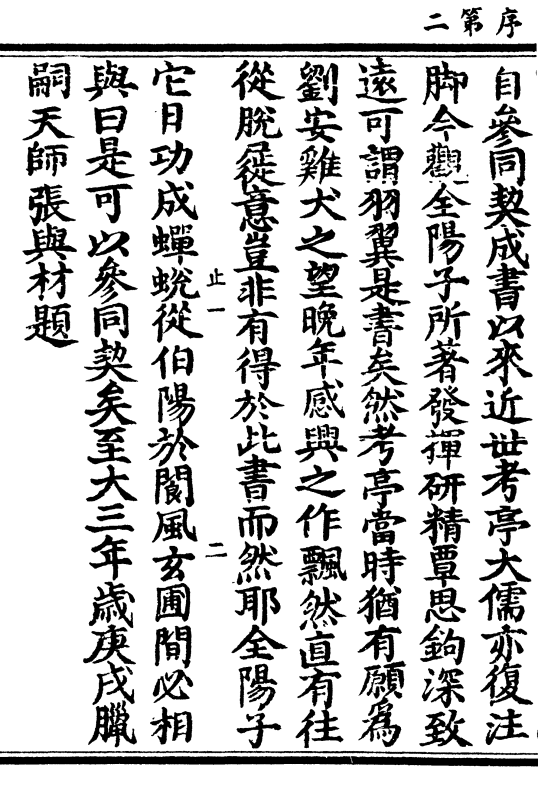 序第二
自參同契成書以來近世考亭大儒亦復注
脚今觀全陽子所著發揮研精覃思鉤深致
遠可謂羽翼是書矣然考亭當時猶有願爲
劉安雞犬之望晚年感興之作飄然直有往
從脫屣意豈非有得於此書而然耶全陽子
止一
二
它日功成蟬蛻從伯陽於閬風玄圃間必相
與曰是可以參同契矣至大三年歲庚戌臘
嗣天師張與材題